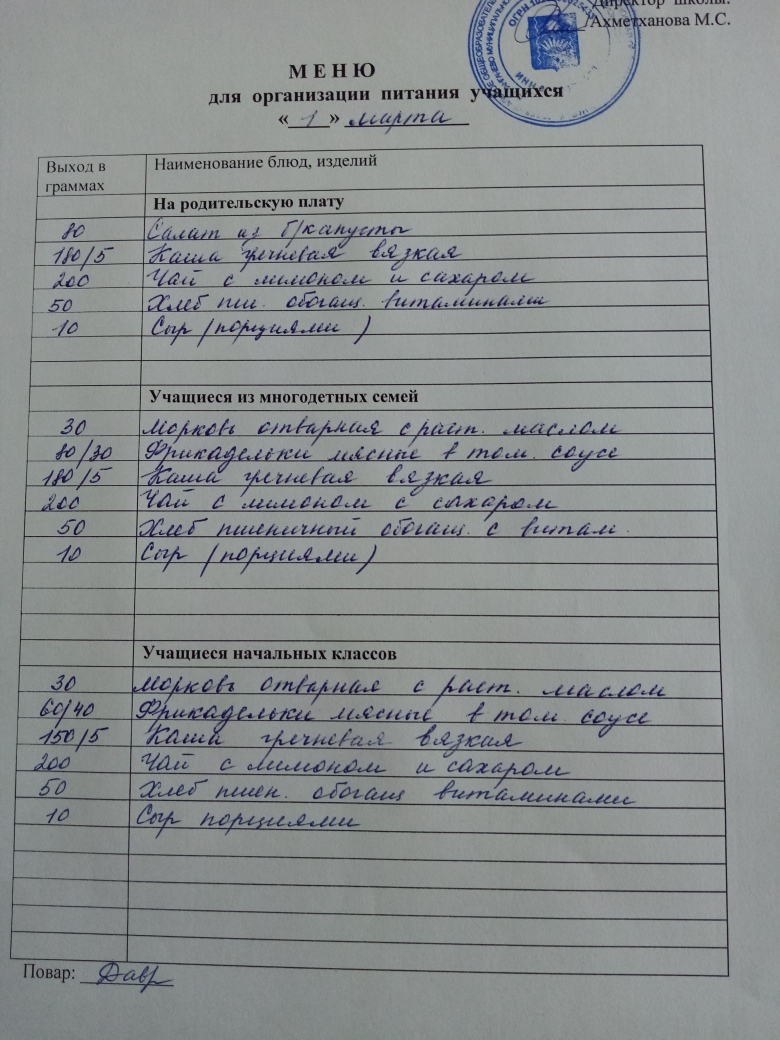 Директор школы:
Ахметханова М.С.
МЕНЮ
для организации питания учащихся
« 1 » марта
Выход в граммах Наименование блюд, изделий
На родительскую плату
80 Салат из б/капусты
180/5 Каша гречневая вязкая
200 Чай с лимоном и сахаром
50 Хлеб пш. обогащ. витаминами
10 Сыр (порциями)
Учащиеся из многодетных семей
30 Морковь отварная с раст. маслом
80/30 Фрикадельки мясные в том. соусе
180/5 Каша гречневая вязкая
200 Чай с лимоном с сыхаром
50 Хлеб пшеничный обогащ. с витам.
10 Сыр (порциями)
Учащиеся начальных классов
30 Морковь отварная с раст. маслом
60/40 Фрикадельки мясные в том. соусе
150/5 Каша гречневая вязкая
200 Чай с лимоном и сахаром
50 Хлеб пшен. обогащ витаминами
10 Сыр порциями
Повар: